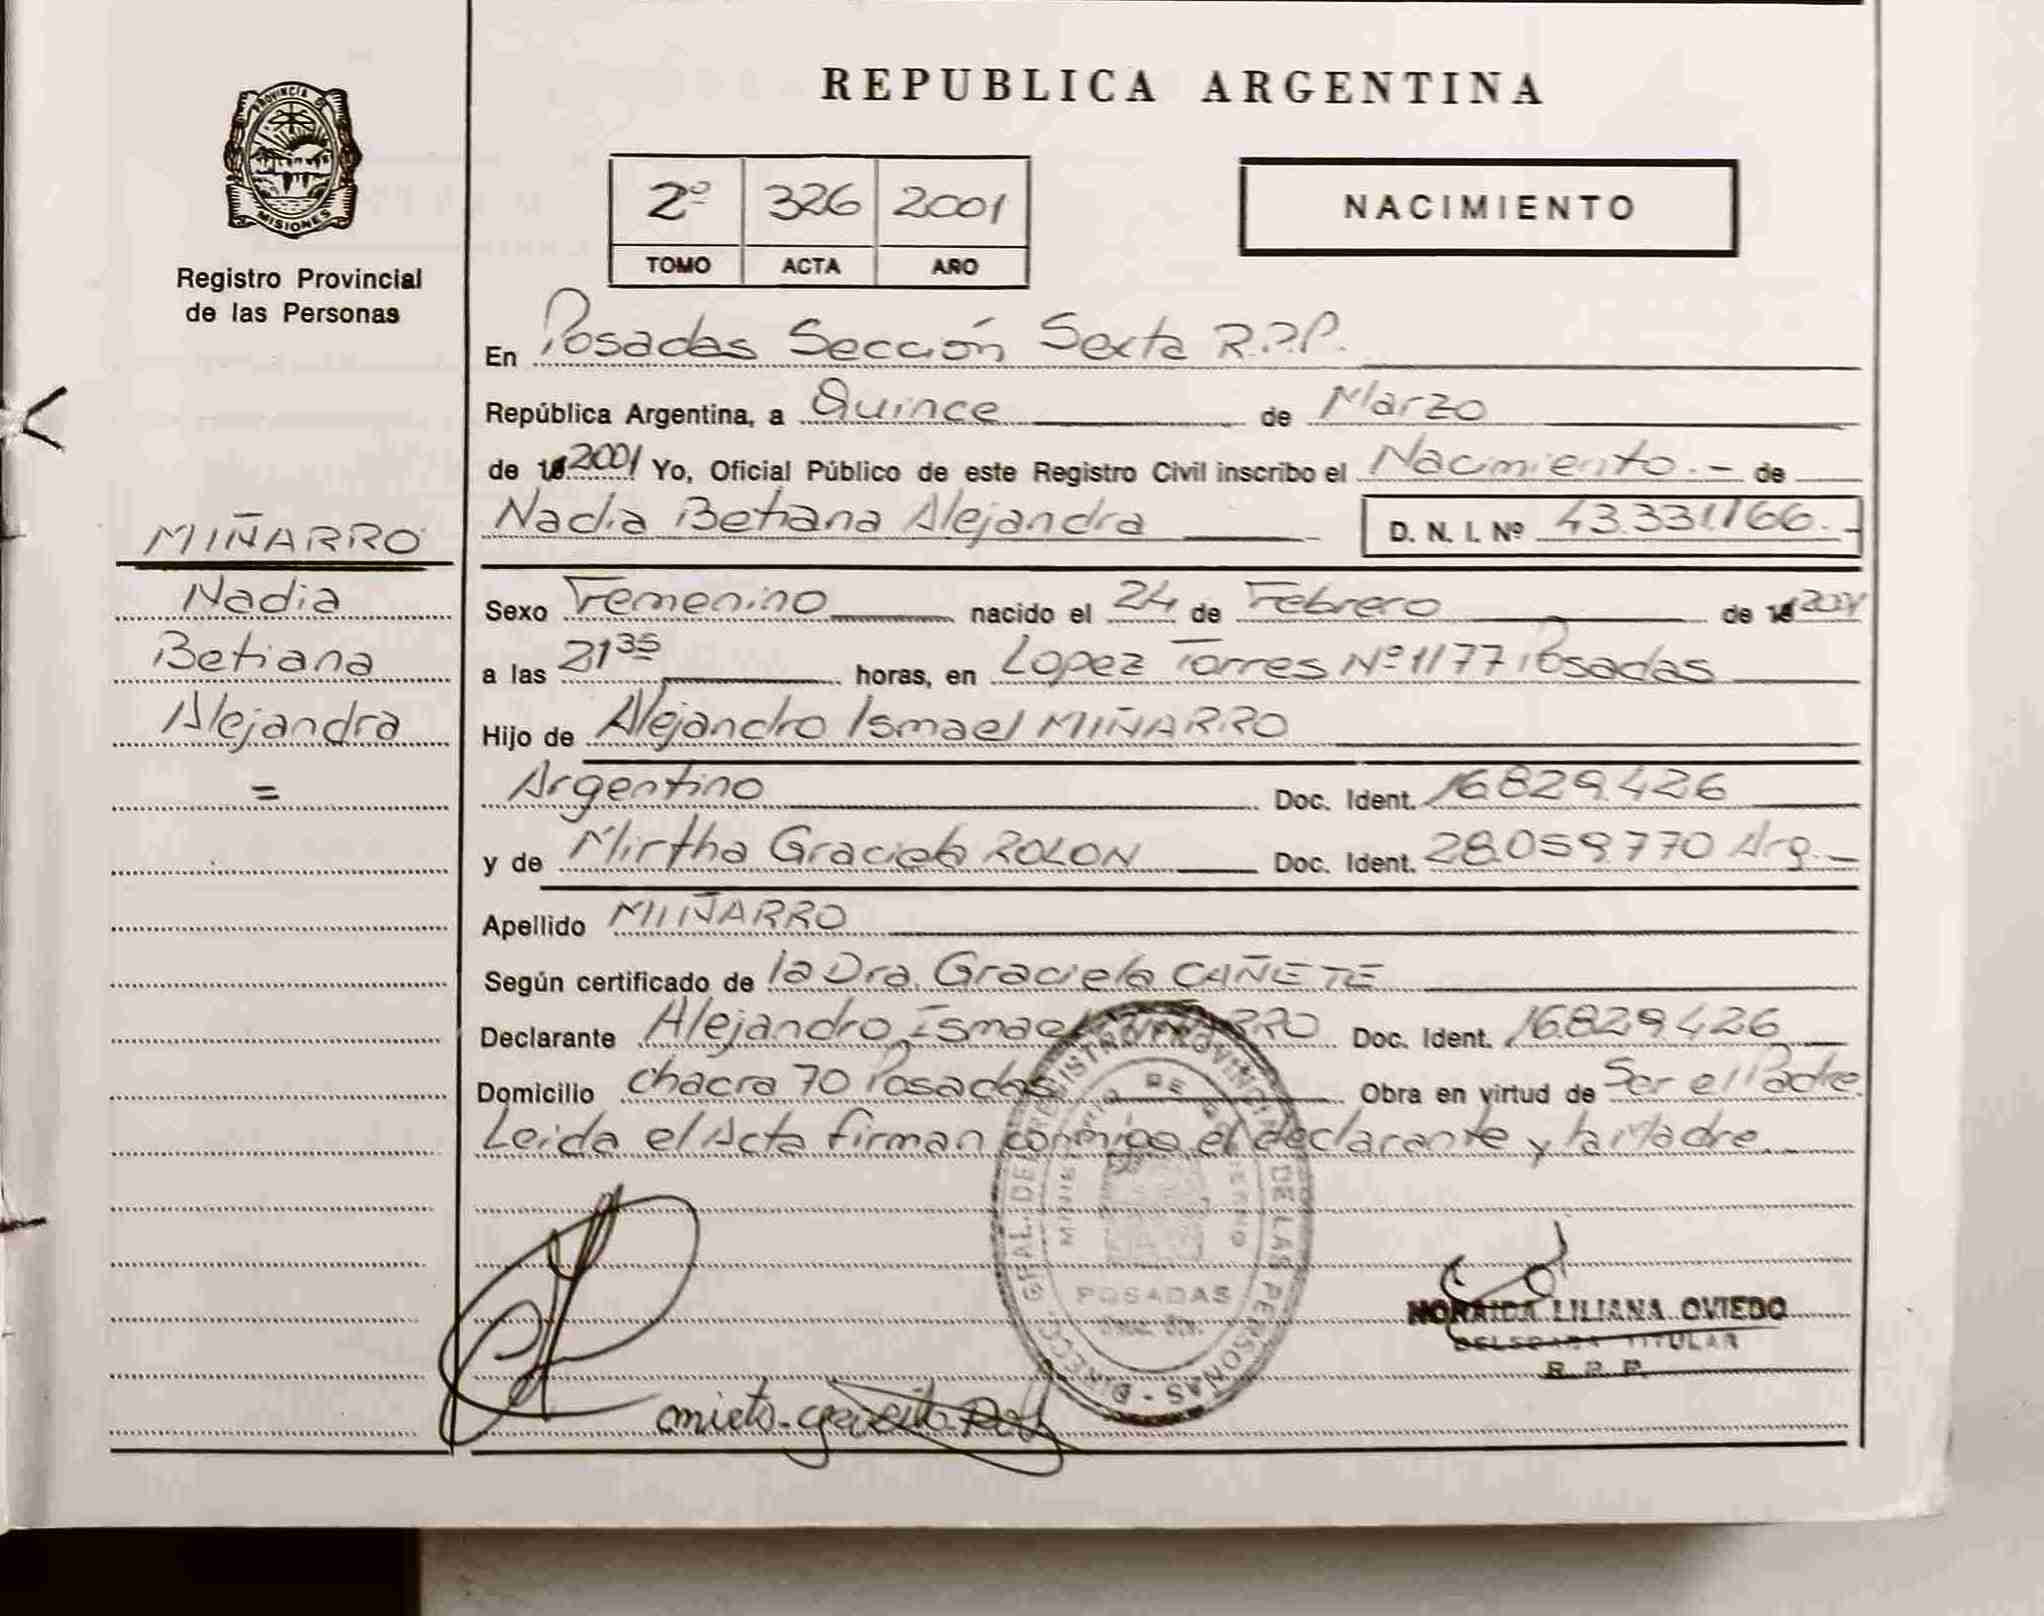 REPUBLICA ARGENTINA
PROVINCIA DE
MISIONES
Registro Provincial
de las Personas
2º 326 2001
TOMO ACTA AÑO
NACIMIENTO
En Posadas Sección Sexta R.P.P.
República Argentina, a Quince de Marzo
de 2001 Yo, Oficial Público de este Registro Civil inscribo el Nacimiento.- de
Nadia Betiana Alejandra D. N. I. Nº 43.331.166.-
MIÑARRO
Nadia
Betiana
Alejandra
=
Sexo Femenino nacido el 24 de Febrero de 2001
a las 21 35 horas, en Lopez Torres Nº 1177 Posadas
Hijo de Alejandro Ismael MIÑARRO
Argentino Doc. Ident. 16.829.426
y de Mirtha Graciela ROLON Doc. Ident. 28.059.770 Arg.
Apellido MIÑARRO
Según certificado de la Dra. Graciela CAÑETE
Declarante Alejandro Ismael MIÑARRO Doc. Ident. 16.829.426
Domicilio Chacra 70 Posadas Obra en virtud de Ser el Padre.
Leida el Acta firman conmigo el declarante y la Madre
DIRECC. GRAL. DEL REGISTRO PROVINCIAL DE LAS PERSONAS
MINISTERIO DE GOBIERNO
POSADAS
NORAIDA LILIANA OVIEDO
DELEGADA TITULAR
R. P. P.